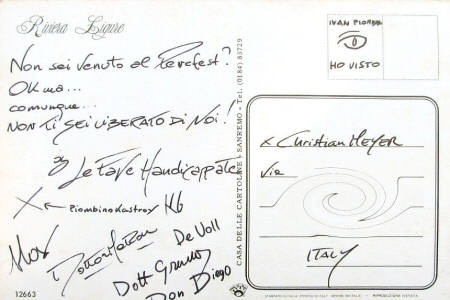 Riviera Ligure
Non sei venuto al Percfest?
OK ma...
comunque...
NON TI SEI LIBERATO DI NOI!
Le Fave Handicappate
X ← Piombinokastroy
Max
De Voll
Dott Grumos
Don Diego
12663
CASA DELLE CARTOLINE - SANREMO - Tel. (0184) 83729
IVAN
HO VISTO
x Christian MEYER
Via
ITALY